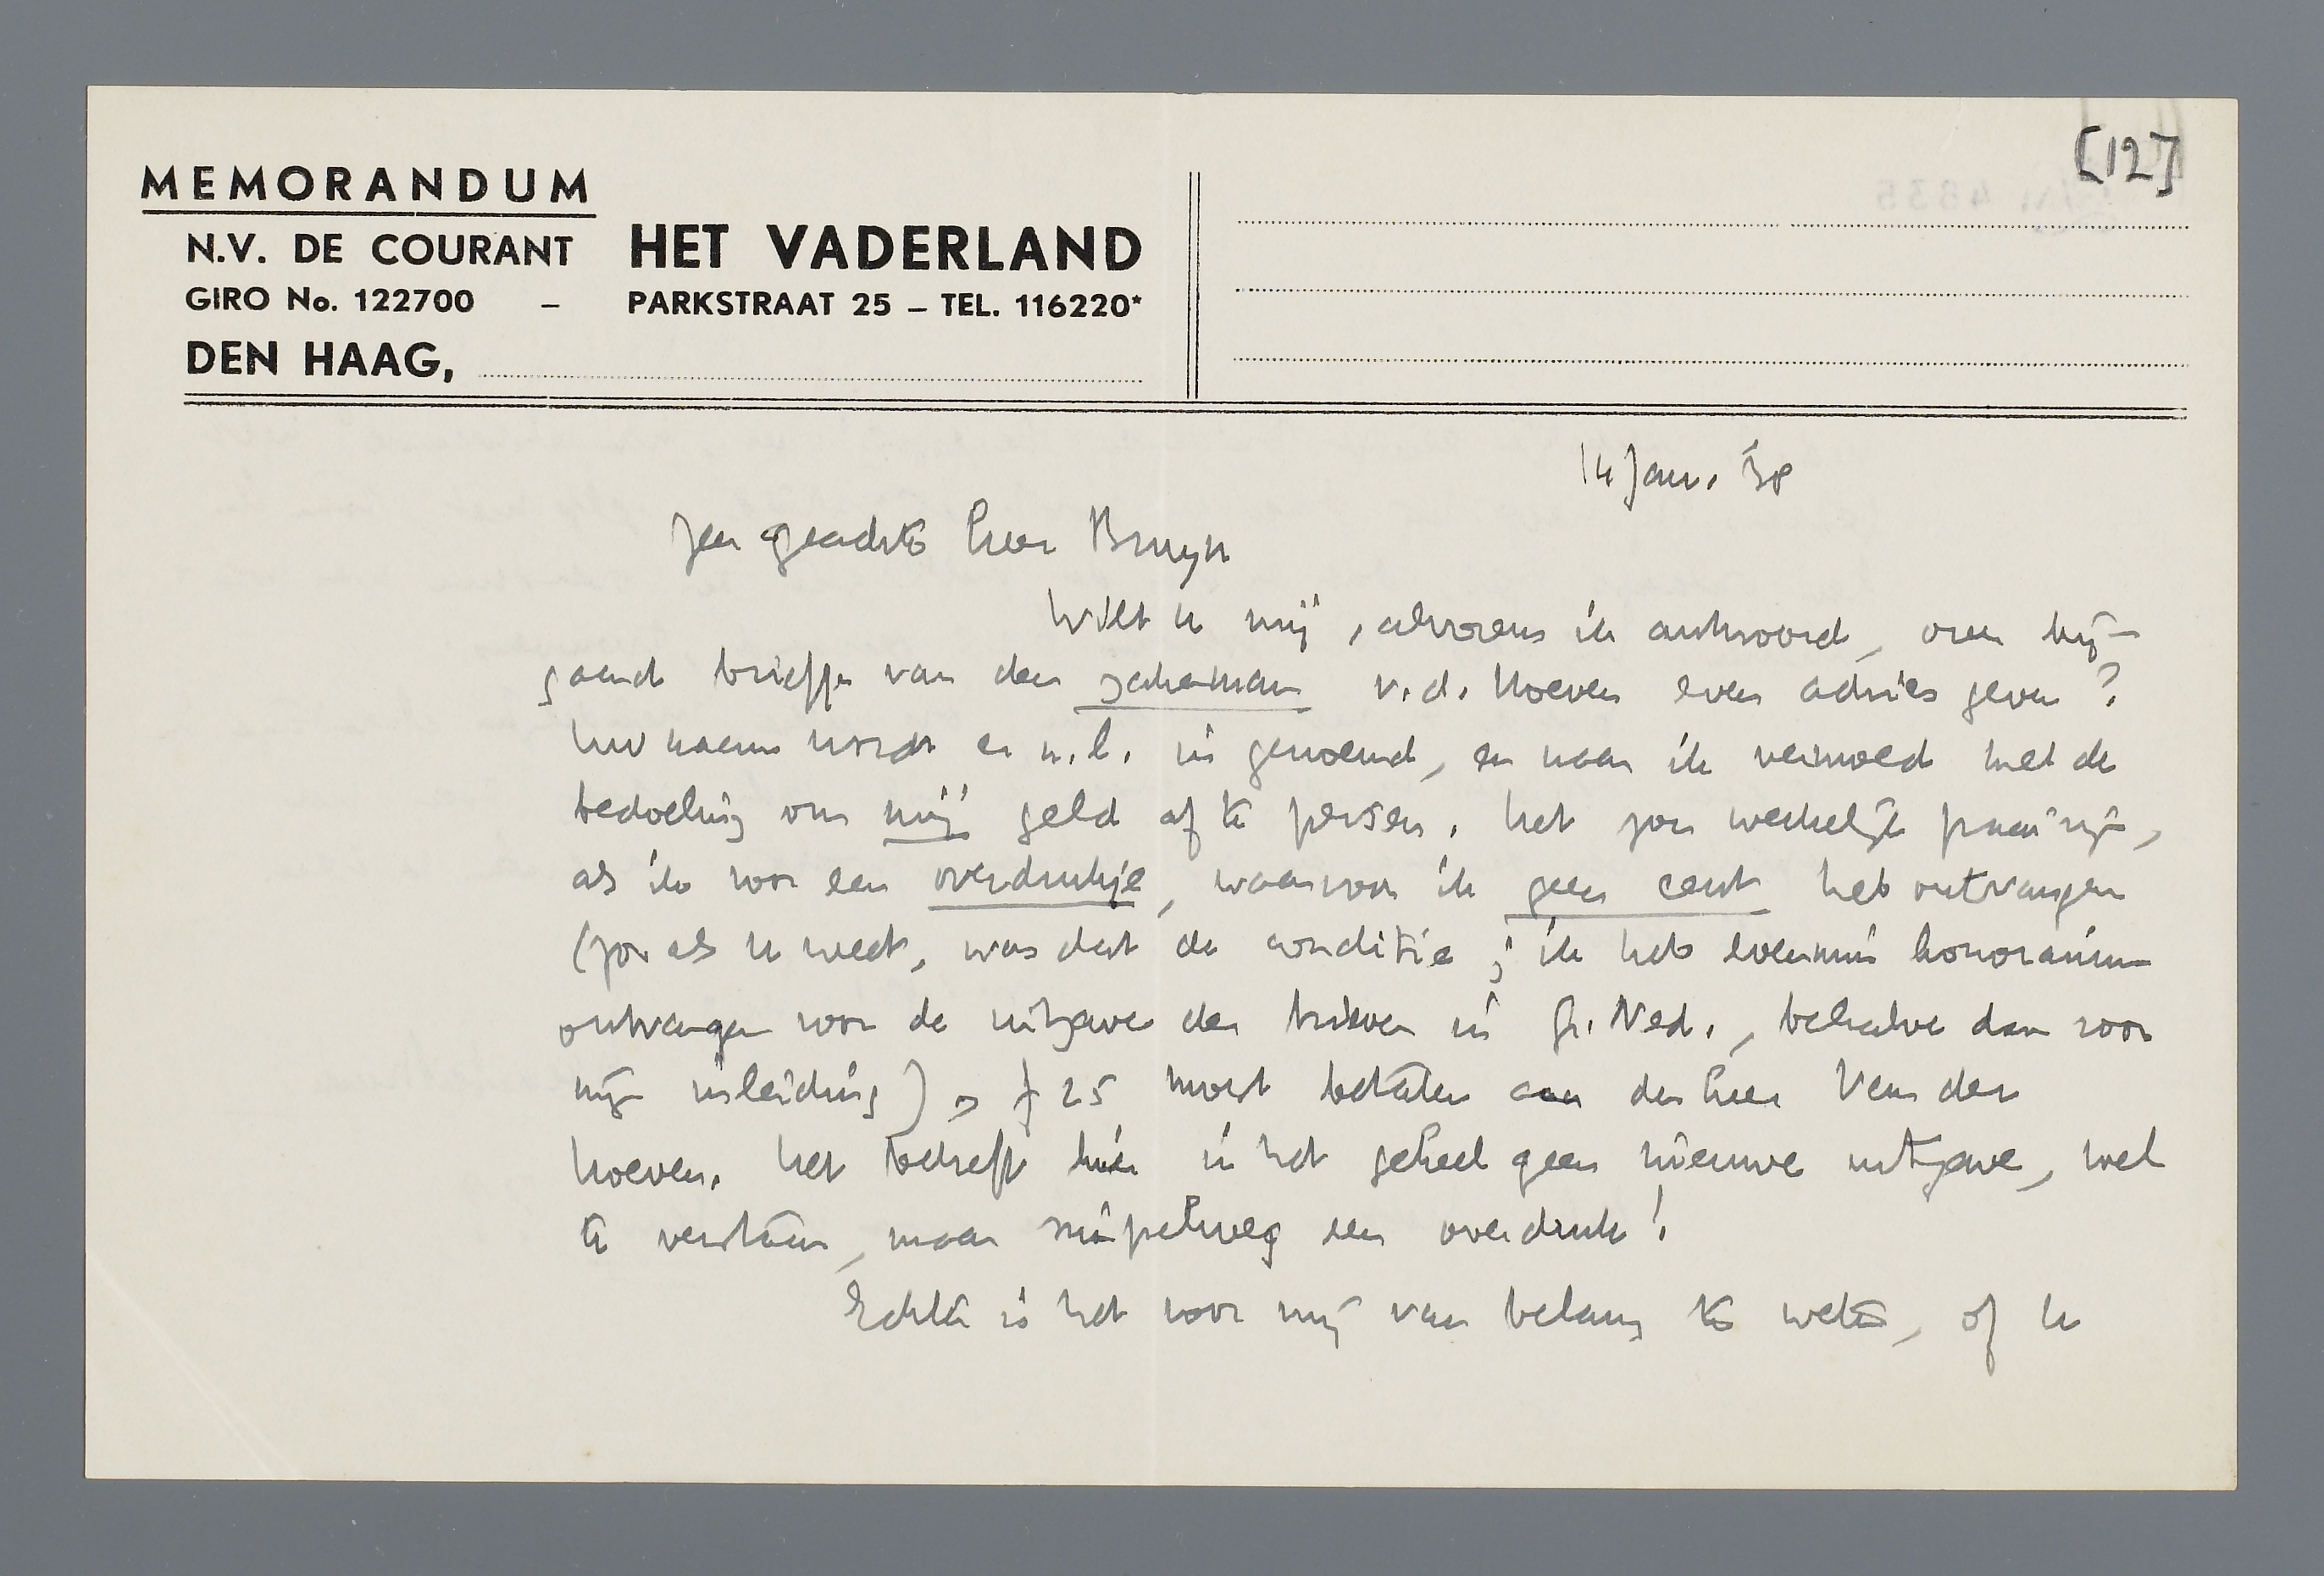 [12]
MEMORANDUM
N.V. DE COURANT HET VADERLAND
GIRO No. 122700 – PARKSTRAAT 25 – TEL. 116220*
DEN HAAG,
14 Jan. '38
Zeer geachte heer Bruyn
Wilt u mij, alvorens ik antwoord, over bij-
gaand briefje van den zakenman v.d. Hoeven even advies geven?
Uw naam wordt er n.l. in genoemd, en naar ik vermoed met de
bedoeling om mij geld af te persen. Het zou werkelijk fraai zijn,
als ik voor een overdrukje, waarvoor ik geen cent heb ontvangen
(zooals u weet, was dat de conditie; ik heb evenmin honorarium
ontvangen voor de uitgave der brieven in Gr. Ned., behalve dan voor
mijn inleiding), f 25 moest betalen aan den heer Van der
Hoeven. Het betreft hier in het geheel geen nieuwe uitgave, wel
te verstaan, maar simpelweg een overdruk!
Echter is het voor mij van belang te weten, of u